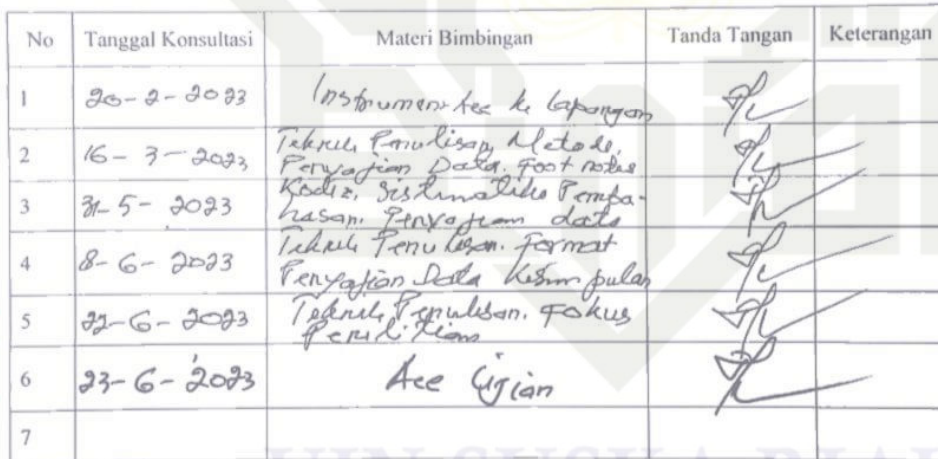 No Tanggal Konsultasi Materi Bimbingan Tanda Tangan Keterangan
1 20-2-2023 Instrumen Acc ke lapangan
2 16-3-2023 Teknik Penulisan, Metode,
Penyajian Data. Foot notes
3 31-5-2023 Sistimatika Pemba-
hasan. Penyajian data
4 8-6-2023 Teknik Penulisan. Format
Penyajian Data Kesimpulan
5 22-6-2023 Teknik Penulisan. Fokus
Penelitian
6 23-6-2023 Acc Ujian
7
UIN SUSKA RIAU